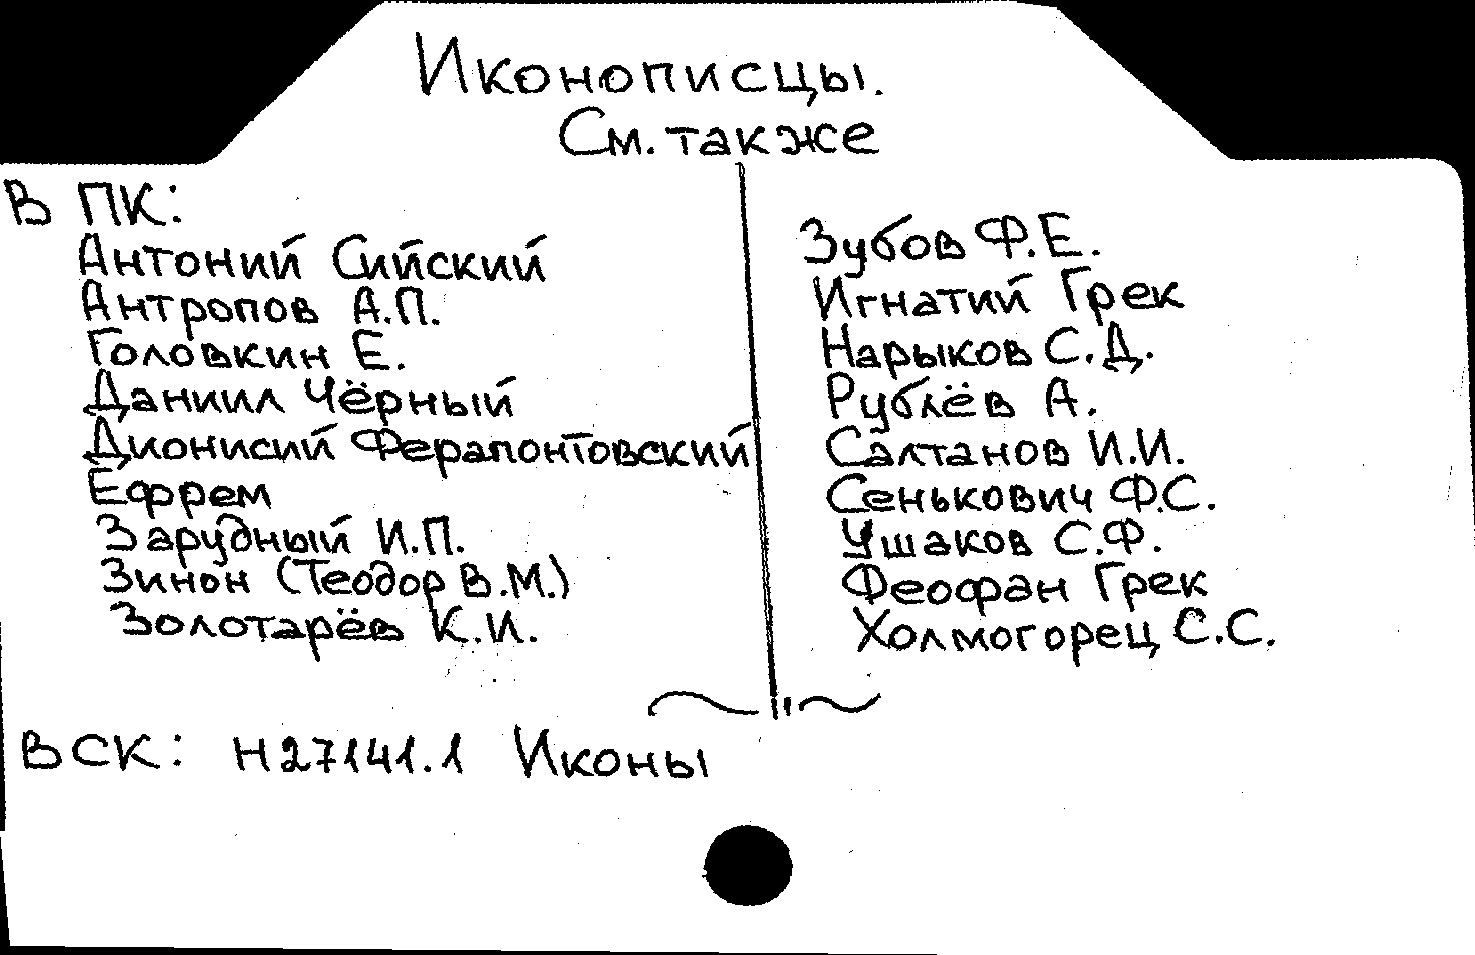 Иконописцы.
См. также
В ПК:
Антоний Сийский
Антропов А.П.
Головкин Е.
Даниил Чёрный
Дионисий Ферапонтовский
Ефрем
Зарудный И.П.
Зинон (Теодор В.М.)
Золотарёв К.И.
Зубов Ф.Е.
Игнатий Грек
Нарыков С.Д.
Рублёв А.
Салтанов И.И.
Сенькович Ф.С.
Ушаков С.Ф.
Феофан Грек
Холмогорец С.С.
В СК: Н27141.1 Иконы